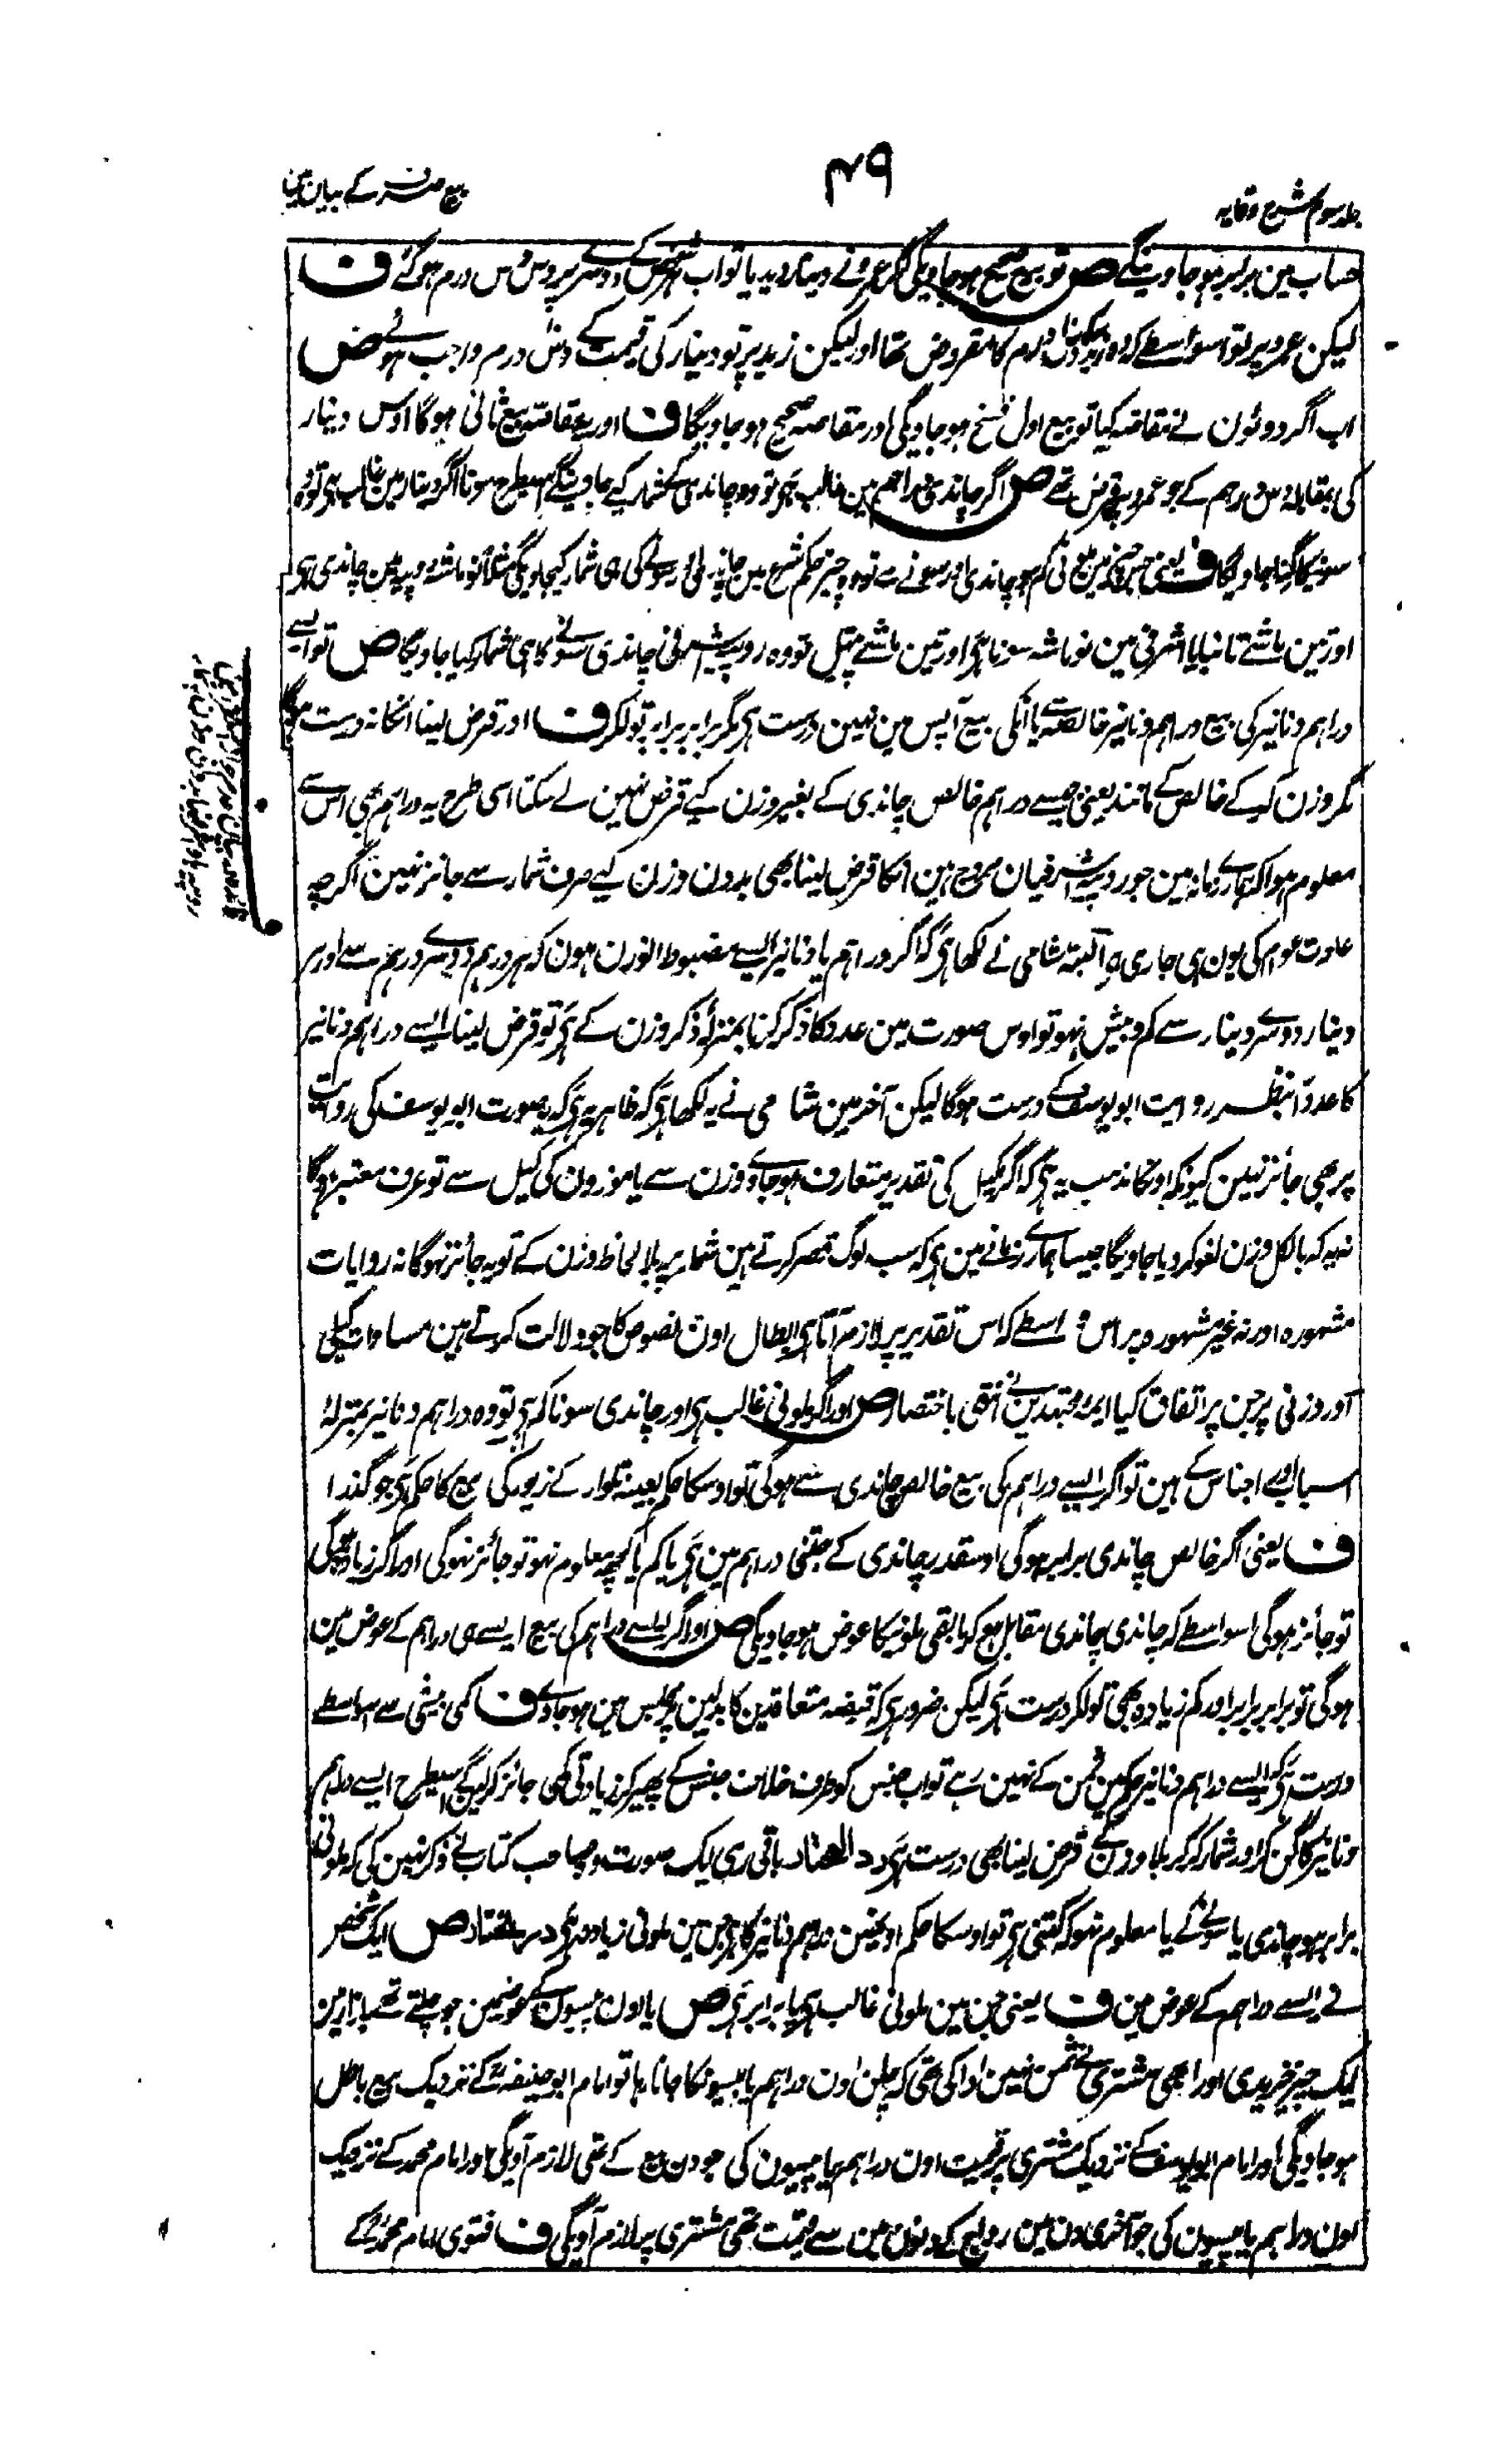 جلد سوم شرح وقایہ
۴۹
بیع صرف کے بیان مین
حساب مین برابر ہو جاوینگے ص تو بیع صحیح ہو جاویگی اگر عمرو نے دینار دیدیا تو اب ہر شخص کے دوسرے پر دس دس درم ہوگئے ف
لیکن عمرو پر تو اسواسطے کہ وہ زید کے دس درم کا مقروض تھا اور لیکن زید پر تو دینار کی قیمت کے دس درم واجب ہوئے ص
اب اگر دونون نے مقاصّہ کیا تو بیع اول فسخ ہو جاویگی اور مقاصہ صحیح ہو جاویگا ف اور یہ مقاصّہ بیع ثانی ہوگا اوس دینار
کی بمقابلہ دس درہم کے جو عمرو پر قرض تھے ص اگر چاندی دراہم مین غالب ہی تو وہ چاندی کے شمار کیے جاوینگے اسیطرح سونا اگر دینار مین غالب ہی تو وہ
سونیکا گنا جاویگا ف یعنی جس چیز مین ملونی کم ہو چاندی اور سونے سے تو وہ چیز حکم شرع مین چاندی اور سونے کی ہی شمار کیجاویگی مثلاً نو ماشہ روپیہ مین چاندی ہی
اور تین ماشے تانبا یا اشرفی مین نو ماشہ سونا ہی اور تین ماشے پیتل تو وہ روپیہ اشرفی چاندی سونے کا ہی شمار کیا جاویگا ص تو ایسے
دراہم دنانیر کی بیع دراہم دنانیر خالصہ سے یا انکی بیع آپس مین نہین درست ہی مگر برابر برابر تولکر ف اور قرض لینا انکا نہ درست ہوگا
مگر وزن کرکے خالص کے مانند یعنی جیسے دراہم خالص چاندی کے بغیر وزن کیے قرض نہین لے سکتا اسی طرح یہ دراہم بھی اس سے
معلوم ہوا کہ ہمارے زمانہ مین جو روپیہ اشرفیان مروج ہین انکا قرض لینا بھی بدون وزن کیے صرف شمار سے جائز نہین اگرچہ
عادت عوام کی یون ہی جاری ہی البتہ شامی نے لکھا ہی کہ اگر دراہم یا دنانیر ایسے مضبوط الوزن ہون کہ ہر درہم دوسرے درہم سے اور ہر
دینار دوسرے دینار سے کم و بیش نہو تو اوس صورت مین عدد کا ذکر کرنا بمنزلہ ذکر وزن کے ہی تو قرض لینا ایسے دراہم دنانیر
کا عدداً بنظر روایت ابو یوسف کے درست ہوگا لیکن آخر مین شامی نے یہ لکھا ہی کہ ظاہر یہ ہی کہ یہ صورت ابو یوسف کی روایت
پر بھی جائز نہین کیونکہ اونکا مذہب یہ ہی کہ اگر کیل کی تقدیر متعارف ہو جاوے وزن سے یا موزون کی کیل سے تو عرف معتبر ہوگا
نہ یہ کہ بالکل وزن لغو کر دیا جاویگا جیسا ہمارے زمانے مین ہی کہ سب لوگ قصر کرتے ہین شمار پر بلا لحاظ وزن کے تو یہ جائز نہوگا نہ روایات
مشہورہ اور نہ غیر مشہورہ پر اس واسطے کہ اس تقدیر پر لازم آتا ہی ابطال اون نصوص کا جو دلالت کرتے ہین مساوات کیلی
اور وزنی پر جن پر اتفاق کیا ایمہ مجتہدین نے انتہی باختصار ص اور اگر ملونی غالب ہی اور چاندی سونا کم ہی تو وہ دراہم دنانیر بمنزلۂ
اسباب اجناس کے ہین تو اگر ایسے دراہم کی بیع خالص چاندی سے ہوگی تو اوسکا حکم بعینہ تلوار کے زیور کی بیع کا حکم ہی جو گذرا
ف یعنی اگر خالص چاندی برابر ہوگی اوسقدر چاندی کے جتنی دراہم مین ہی یا کم یا کچھ معلوم نہو تو جائز نہوگی اور اگر زیادہ ہوگی
تو جائز ہوگی اسواسطے کہ چاندی چاندی مقابل ہو کر مابقی ملونیکا عوض ہو جاویگی ص اور اگر ایسے دراہم کی بیع ایسے ہی دراہم کے عوض مین
ہوگی تو برابر برابر اور کم زیادہ بھی تولکر درست ہی لیکن ضرور ہی کہ قبضہ متعاقدین کا بدلین پر مجلس مین ہو جاوے ف کمی بیشی سے اسواسطے
درست ہی کہ ایسے دراہم دنانیر حکم مین ثمن کے نہین رہے تو اب جنس کو طرف خلاف جنس کے پھیر کر زیادتی بھی جائز کر لینگے اسیطرح ایسے دراہم
دنانیر کا گن کر اور شمار کرکر بلا وزن کے قرض لینا بھی درست ہی رد المحتار باقی رہی ایک صورت وہ صاحب کتاب نے ذکر نہین کی کہ ملونی
برابر ہو چاندی یا سونے کے یا معلوم نہو کہ کتنی ہی تو اوسکا حکم اونہین دراہم دنانیر کا ہی جن مین ملونی زیادہ ہی در مختار ص ایک شخص
نے ایسے دراہم کے عوض مین ف یعنی جن مین ملونی غالب ہی یا برابر ہی ص یا اون پیسون کے عوضمین جو چلتے تھے بازار مین
ایک چیز خریدی اور ابھی مشتری نے ثمن نہین ادا کی تھی کہ چلن اون دراہم یا پیسونکا جاتا رہا تو امام ابو حنیفہؒ کے نزدیک بیع باطل
ہو جاویگی اور امام ابو یوسف کے نزدیک مشتری پر قیمت اون دراہم یا پیسون کی جو دن بیع کے تھی لازم آویگی اور امام محمد کے نزدیک
اون دراہم یا پیسون کی جو آخری دن مین رواج کے دنون مین سے قیمت تھی مشتری پر لازم آویگی ف فتوی امام محمدؒ کے